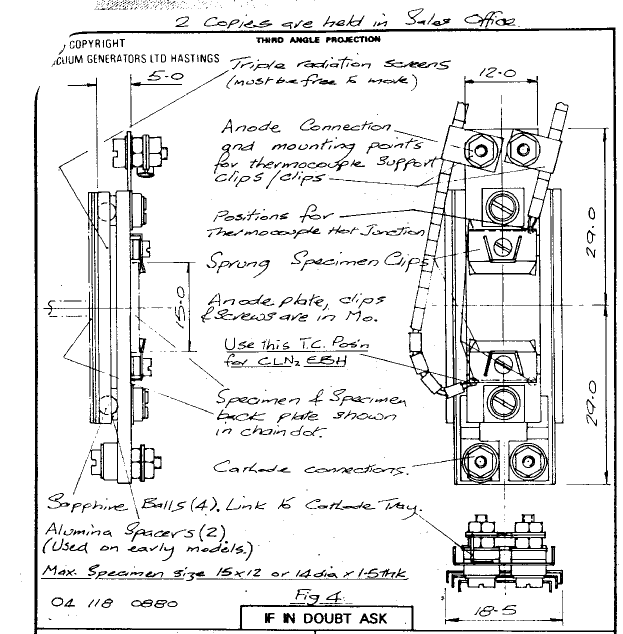 2 Copies are held in Sales Office.
COPYRIGHT
THIRD ANGLE PROJECTION
CUUM GENERATORS LTD HASTINGS
5.0
Triple radiation screens
(must be free to move)
12.0
Anode Connection
and mounting points
for thermocouple support
clips/clips
Positions for
Thermocouple Hot Junction
29.0
Sprung Specimen Clips
15.0
Anode plate, clips
& screws are in Mo.
Use this T.C. Posn
for CLN₂ EBH
Specimen & Specimen
back plate shown
in chain dot.
29.0
Cathode connections.
Sapphire Balls (4). Link to Cathode Tray.
Alumina Spacers (2)
(Used on early models.)
Max. Specimen size 15x12 or 14 dia x 1.5 thk
Fig 4
04 118 0880
18.5
IF IN DOUBT ASK